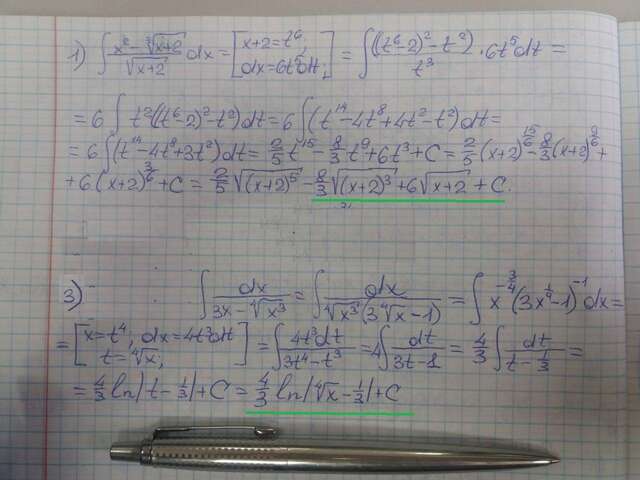 1) ∫ (x² - ∛(x+2))/√(x+2) dx = [x+2=t⁶, dx=6t⁵dt;] = ∫ ((t⁶-2)²-t²)/t³ · 6t⁵dt =
= 6∫ t²((t⁶-2)²-t²)dt = 6∫(t¹⁴-4t⁸+4t²-t²)dt =
= 6∫(t¹⁴-4t⁸+3t²)dt = 2/5 t¹⁵ - 8/3 t⁹ + 6t³ + C = 2/5 (x+2)^(15/6) - 8/3 (x+2)^(9/6) +
+ 6(x+2)^(3/6) + C = 2/5 √((x+2)⁵) - 8/3 √((x+2)³) + 6√(x+2) + C.
3) ∫ dx/(3x - ⁴√x³) = ∫ dx/(⁴√x³(3⁴√x - 1)) = ∫ x^(-3/4) (3x^(1/4) - 1)^(-1) dx =
= [x=t⁴, dx=4t³dt t=⁴√x;] = ∫ 4t³dt/(3t⁴-t³) = 4∫ dt/(3t-1) = 4/3 ∫ dt/(t - 1/3) =
= 4/3 ln|t - 1/3| + C = 4/3 ln|⁴√x - 1/3| + C